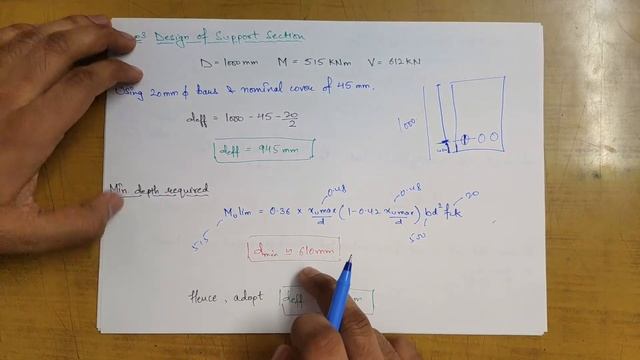 Design of Support Section
D = 1000 mm M = 515 KNm V = 612 KN
Using 20mm ϕ bars & nominal cover of 45 mm.
deff = 1000 - 45 - 20/2
deff = 945 mm
1000
Min. depth required
0.48 0.48 20
Mulim = 0.36 × xumax/d (1 - 0.42 xumax/d) bd² fck
515 550
dmin ≃ 610mm
Hence, adopt deff